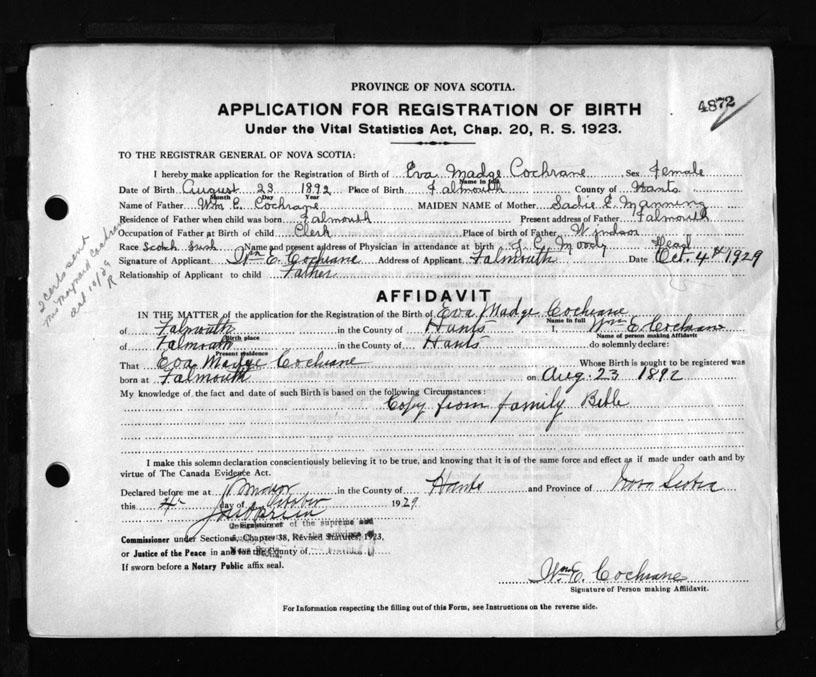 PROVINCE OF NOVA SCOTIA.
4872
APPLICATION FOR REGISTRATION OF BIRTH
Under the Vital Statistics Act, Chap. 20, R. S. 1923.
TO THE REGISTRAR GENERAL OF NOVA SCOTIA:
I hereby make application for the Registration of Birth of Eva Madge Cochrane Sex female
Name in full
Date of Birth August 23 1892 Place of Birth Falmouth County of Hants
Month Day Year
Name of Father Wm E. Cochrane MAIDEN NAME of Mother Sadie E. Manning
Residence of Father when child was born Falmouth Present address of Father Falmouth
Occupation of Father at Birth of child Clerk Place of birth of Father Windsor
Race Scotch Name and present address of Physician in attendance at birth Moody Dead
Signature of Applicant Wm E. Cochrane Address of Applicant Falmouth Date Oct. 4th 1929
Relationship of Applicant to child Father
2 certs sent
Mrs Maynard
AFFIDAVIT
IN THE MATTER of the application for the Registration of the Birth of Eva Madge Cochrane
Name in full
of Falmouth in the County of Hants I, Wm E. Cochrane
Birth place Name of person making Affidavit
of Falmouth in the County of Hants do solemnly declare:
Present residence
That Eva Madge Cochrane Whose Birth is sought to be registered was
born at Falmouth on Aug. 23 1892
My knowledge of the fact and date of such Birth is based on the following Circumstances:
Copy from family Bible
I make this solemn declaration conscientiously believing it to be true, and knowing that it is of the same force and effect as if made under oath and by
virtue of The Canada Evidence Act.
Declared before me at Windsor in the County of Hants and Province of Nova Scotia
this 4th day of October 1929
of the supreme
Commissioner under Section , Chapter 38, Revised Statutes, 1923,
or Justice of the Peace in and for the County of
If sworn before a Notary Public affix seal.
Wm E. Cochrane
Signature of Person making Affidavit.
For Information respecting the filling out of this Form, see Instructions on the reverse side.